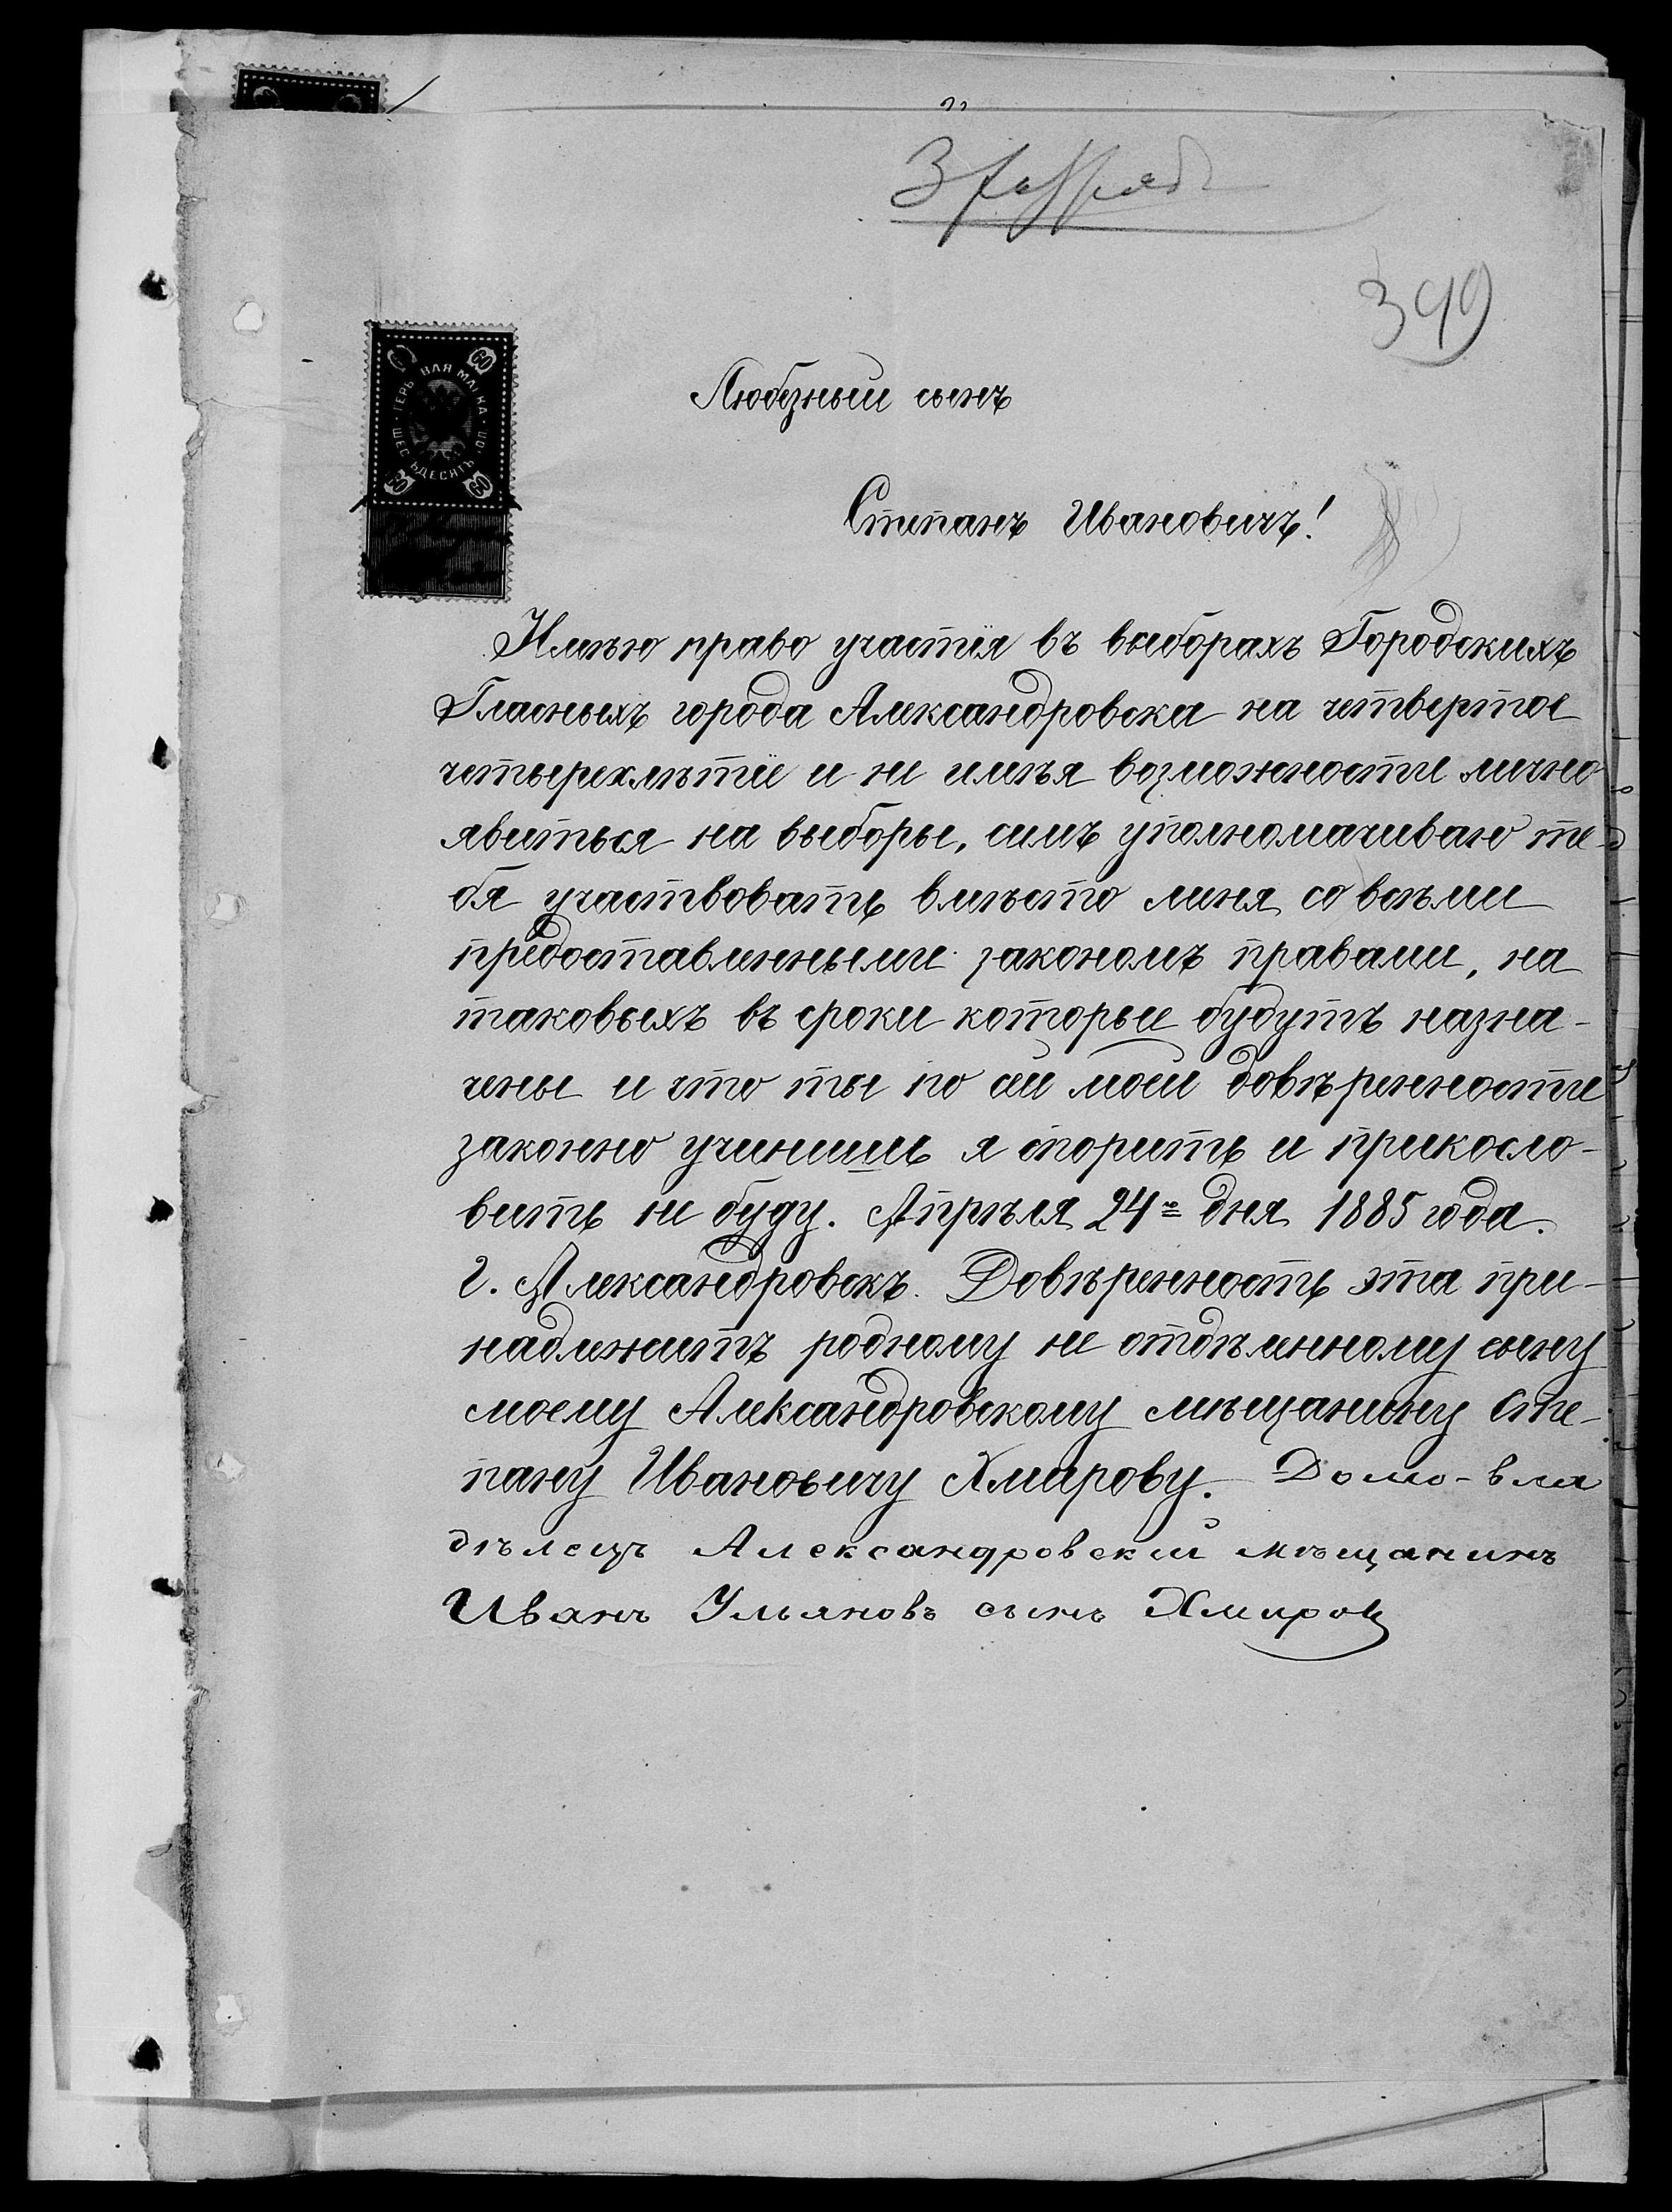 3 разряд
399
ГЕРБОВАЯ МАРКА
ШЕСТЬДЕСЯТЪ
60 60
60 60
Любезный сынъ
Степанъ Ивановичъ!
Имѣю право участія въ выборахъ Городскихъ
Гласныхъ города Александровска на четвертое
четырехлѣтіе и не имѣя возможности лично
явиться на выборы, симъ уполномачиваю те-
бя участвовать вмѣсто меня со всѣми
предоставленными закономъ правами, на
таковыхъ въ сроки которые будутъ назна-
чены и что ты по сей моей довѣренности
законно учинишь я спорить и прикосло-
вить не буду. Апрѣля 24го дня 1885 года.
г. Александровскъ. Довѣренность эта при-
надлежитъ родному не отдѣленному сыну
моему Александровскому мѣщанину Сте-
пану Ивановичу Хмирову. Домо-вла
дѣлецъ Александровскій мѣщанинъ
Иванъ Ульяновъ сынъ Хмировъ